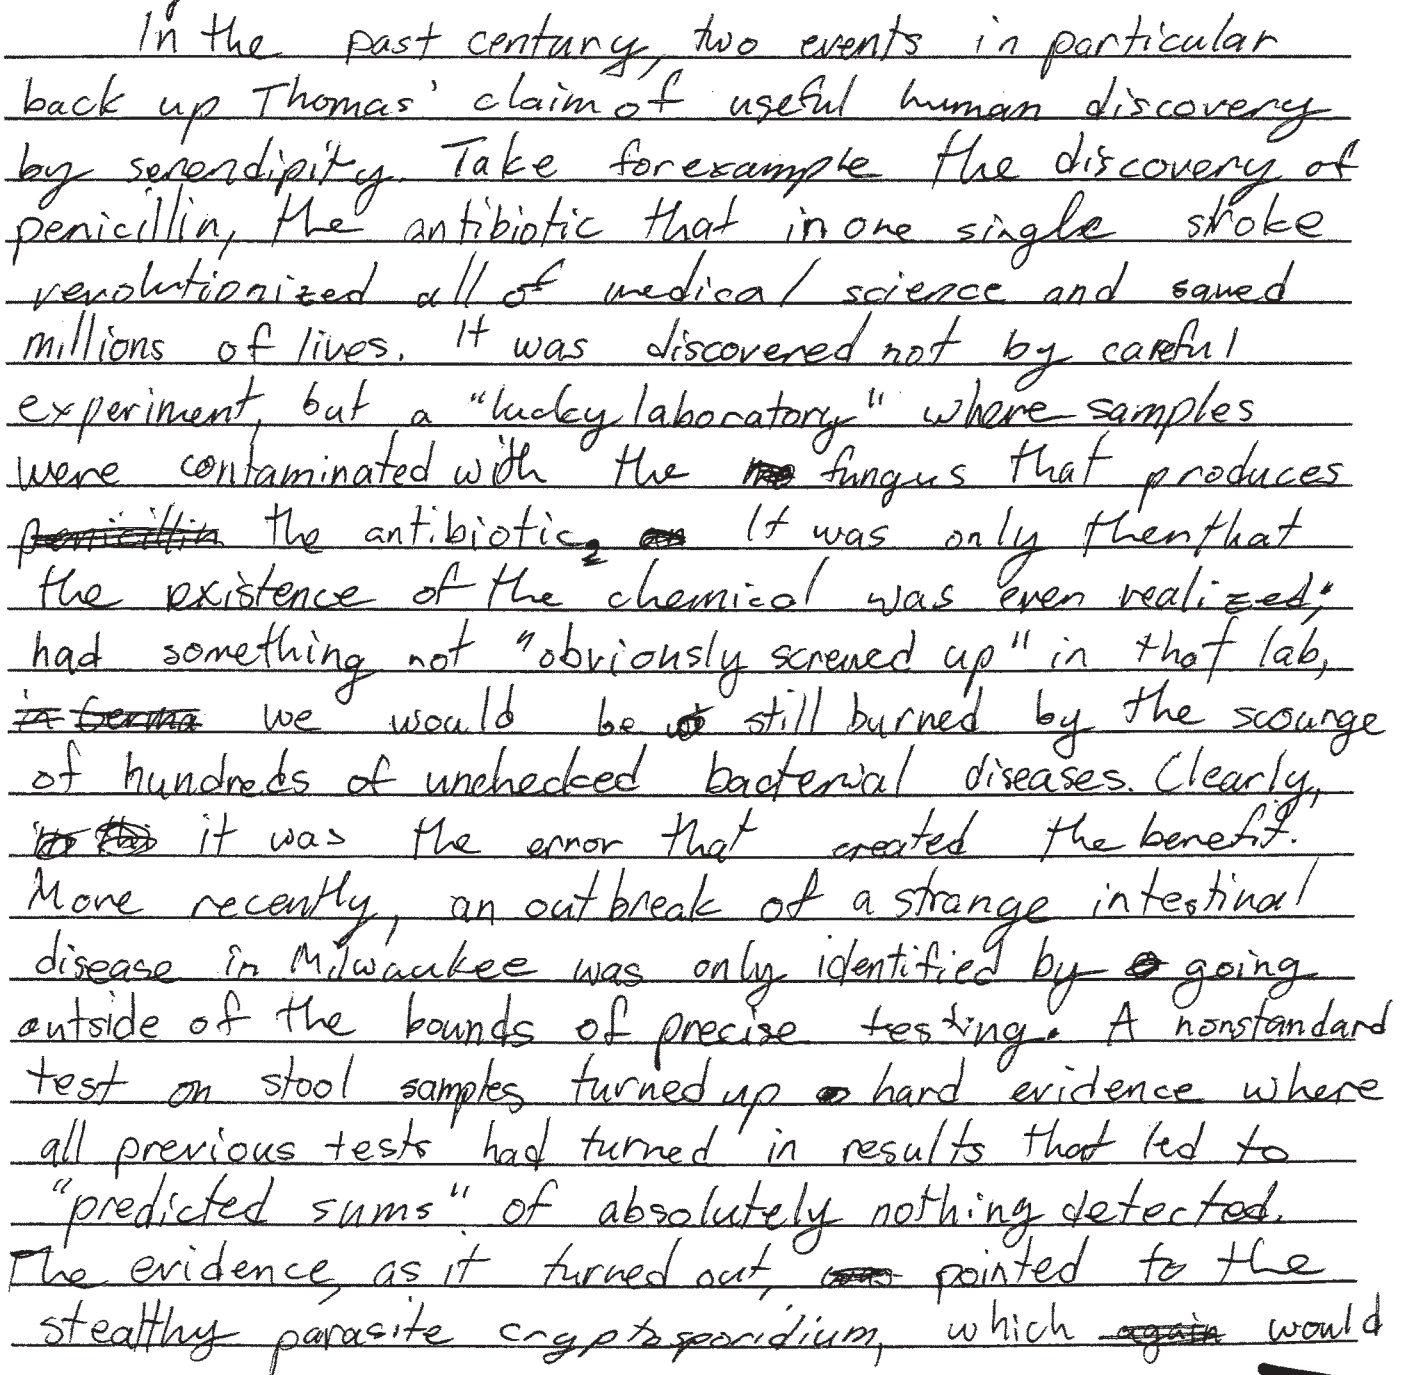 In the past century, two events in particular
back up Thomas' claim of useful human discovery
by serendipity. Take for example the discovery of
penicillin, the antibiotic that in one single stroke
revolutionized all of medical science and saved
millions of lives. It was discovered not by careful
experiment, but a "lucky laboratory" where samples
were contaminated with the fungus that produces
penicillin the antibiotic. It was only then that
the existence of the chemical was even realized;
had something not "obviously screwed up" in that lab,
we would be still burned by the scourge
of hundreds of unchecked bacterial diseases. Clearly,
it was the error that created the benefit.
More recently, an outbreak of a strange intestinal
disease in Milwaukee was only identified by going
outside of the bounds of precise testing. A nonstandard
test on stool samples turned up hard evidence where
all previous tests had turned in results that led to
"predicted sums" of absolutely nothing detected.
The evidence, as it turned out, pointed to the
stealthy parasite cryptosporidium, which again would